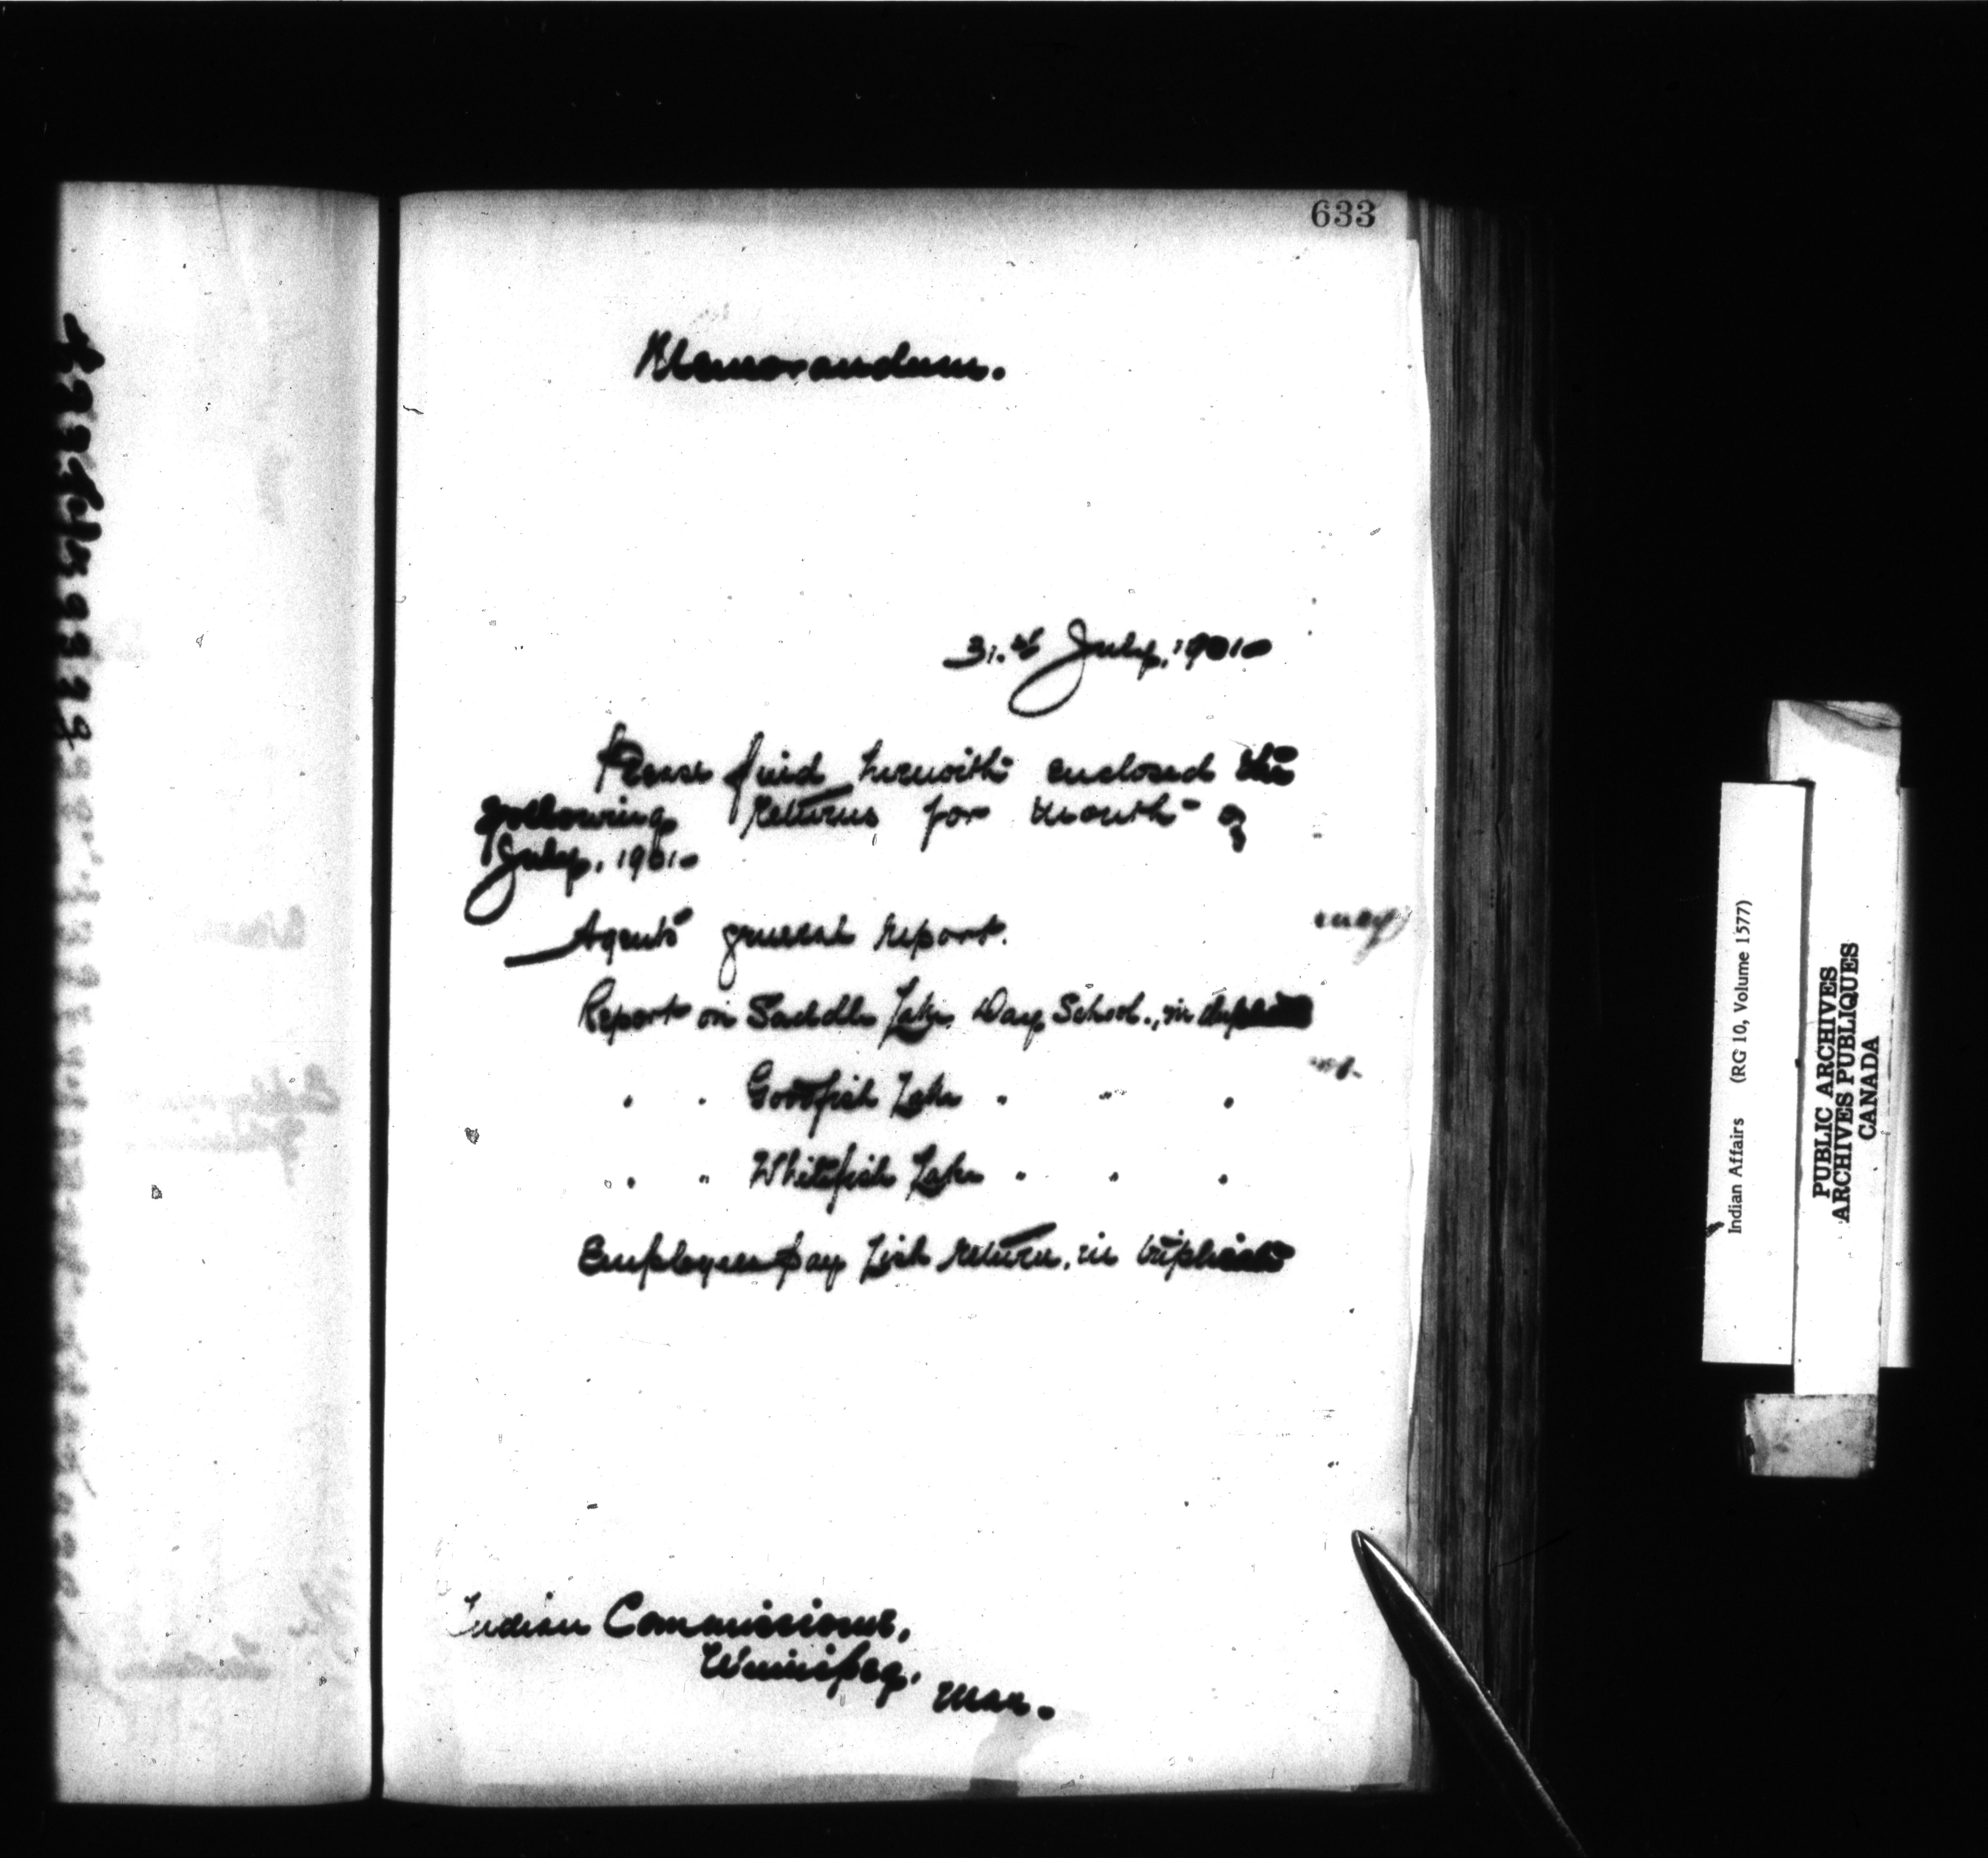 633
Memorandum.
31.st July, 1901.
Please find herewith enclosed the
following Returns for month of
July, 1901.
Agents' general report.
Report on Saddle Lake Day School., in duplicate
" " Goodfish Lake " " "
" " Whitefish Lake " " "
Employees pay list return, in triplicate
Indian Commissioner,
Winnipeg,
Man.
Indian Affairs (RG 10, Volume 1577)
PUBLIC ARCHIVES
ARCHIVES PUBLIQUES
CANADA